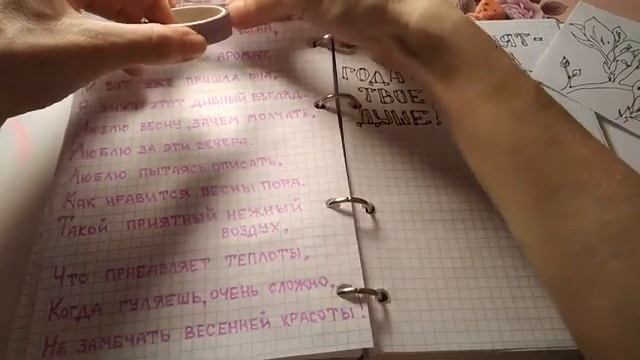 ВЕСНА,
АРОМАТ,
И ВОТ УЖЕ ПРИШЛА ОНА,
Я ЭТОТ ДИВНЫЙ ВЗГЛЯД.
ЛЮБЛЮ ВЕСНУ, ЗАЧЕМ МОЛЧАТЬ,
ЛЮБЛЮ ЗА ЭТИ ВЕЧЕРА.
ЛЮБЛЮ ПЫТАЯСЬ ОПИСАТЬ,
КАК НРАВИТСЯ ВЕСНЫ ПОРА.
ТАКОЙ ПРИЯТНЫЙ НЕЖНЫЙ
ВОЗДУХ,
ЧТО ПРИБАВЛЯЕТ ТЕПЛОТЫ,
КОГДА ГУЛЯЕШЬ, ОЧЕНЬ СЛОЖНО,
НЕ ЗАМЕЧАТЬ ВЕСЕННЕЙ КРАСОТЫ!
ГОДА
ТВОЕ
ДУШЕ!